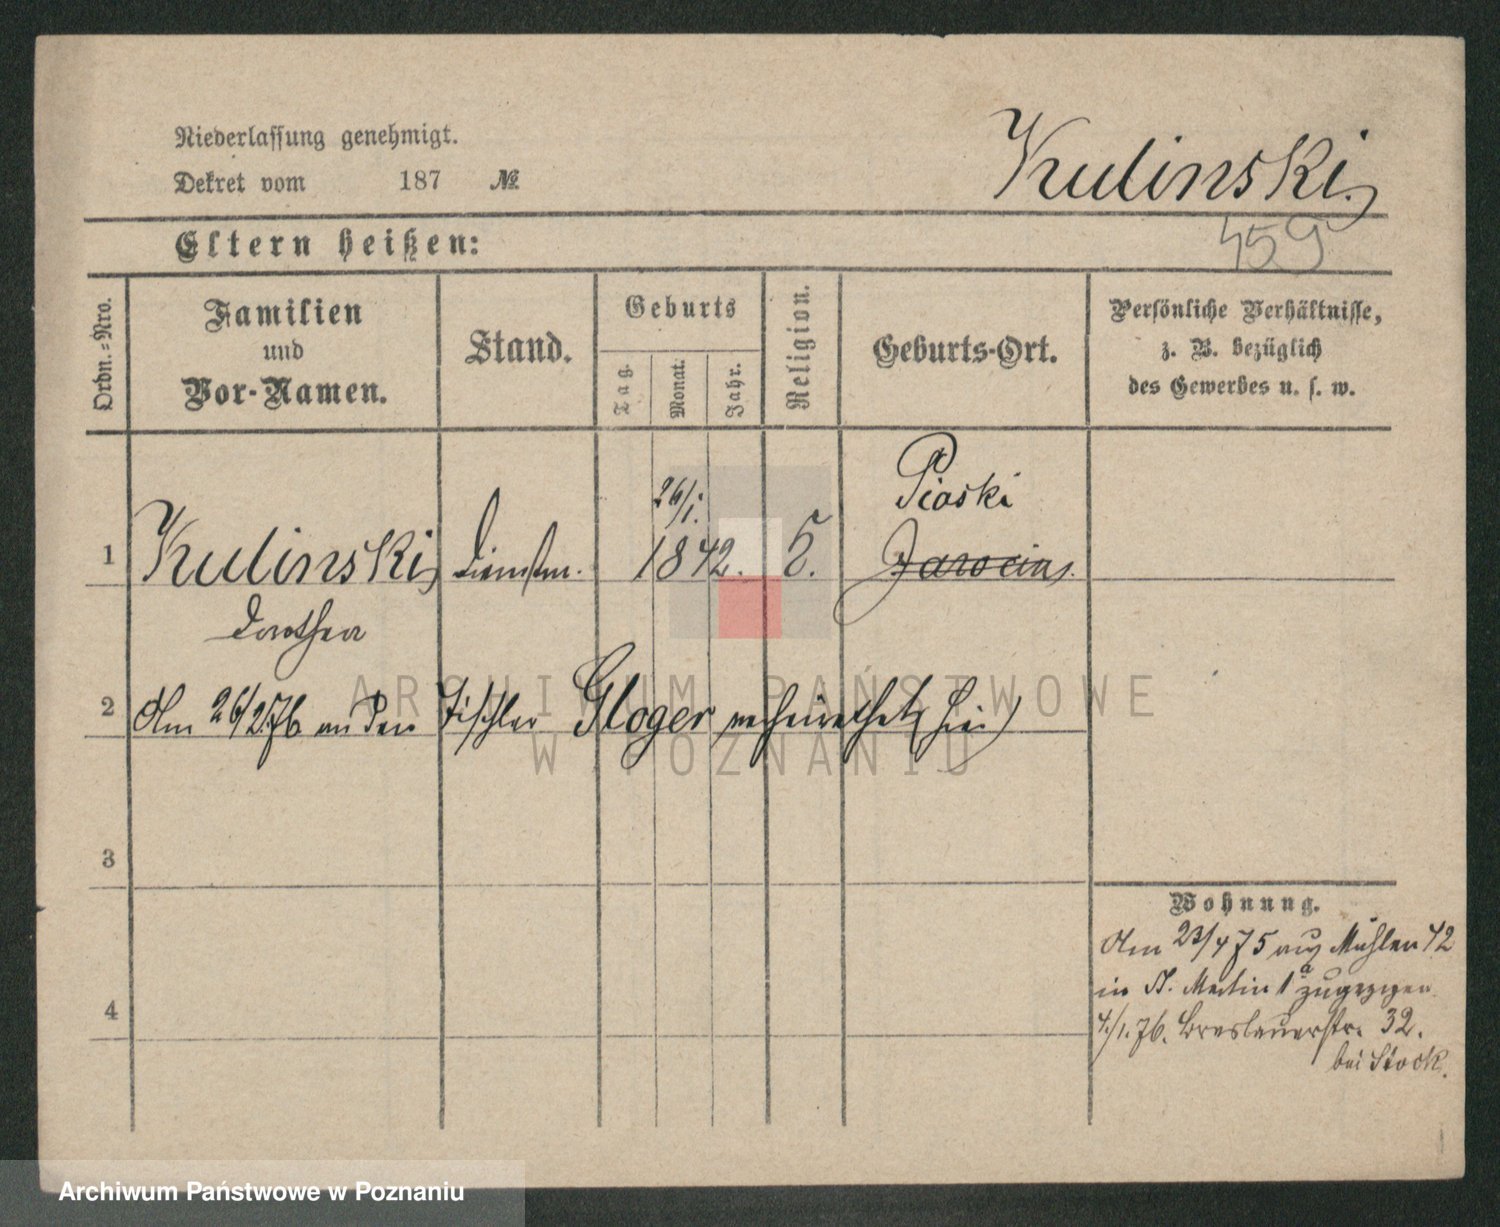 Niederlassung genehmigt.
Dekret vom 187 №
Kulinski
459
Eltern heißen:
Ordn.-Nro.
Familien
und
Vor-Namen.
Stand.
Geburts
Tag.
Monat.
Jahr.
Religion.
Geburts-Ort.
Persönliche Verhältnisse,
z. B. bezüglich
des Gewerbes u. s. w.
Piaski
26/1.
1 Kulinski Dienstm. 1842. Jarocin.
Dorothea
2 Am 26/2 76 an den Tischler Gloger verheirathet (hier)
3
4
Wohnung.
Am 23/4 75 aus Mühlen 42
in St. Martin 1a zugezogen
4/1. 76. Breslauerstr. 32.
bei Stock.
ARCHIWUM PAŃSTWOWE
W POZNANIU
Archiwum Państwowe w Poznaniu